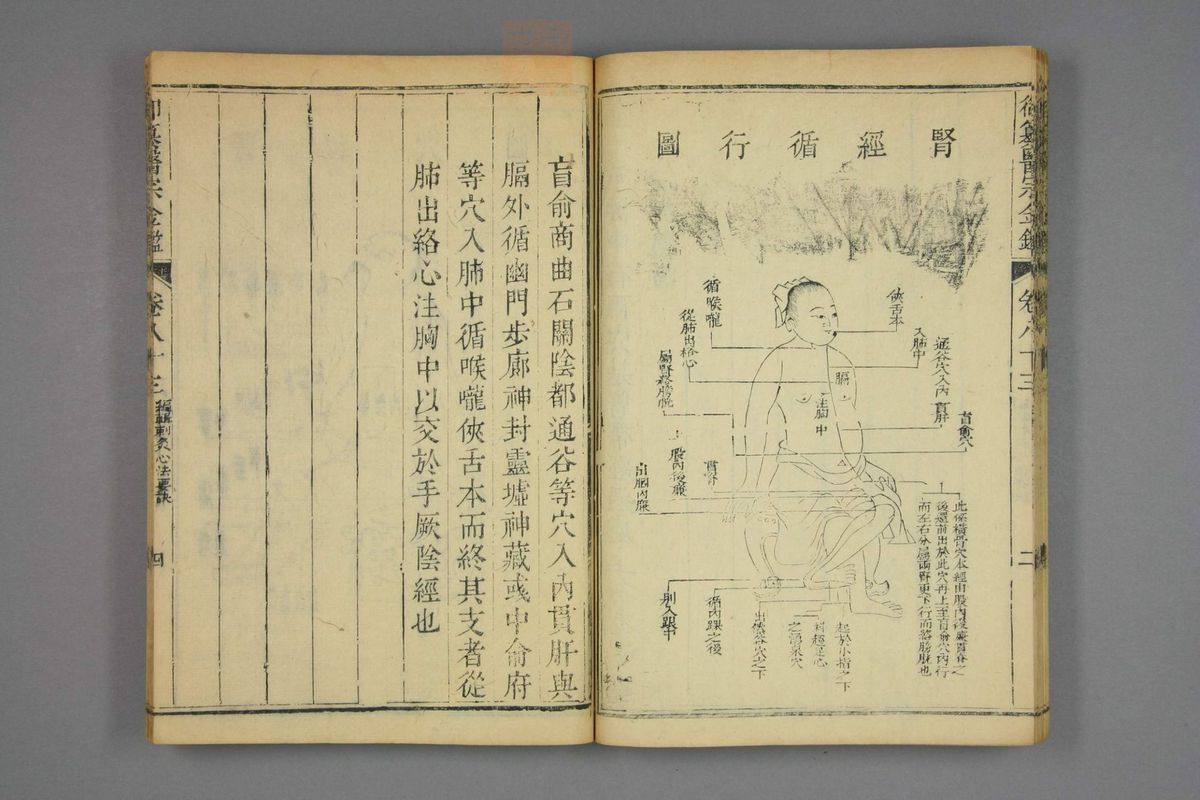 腎經循行圖
俠舌本
入肺中
循喉嚨
從肺出絡心
膈
注胸中
通谷穴入內貫肝
肓俞穴
屬腎絡膀胱
上股內後廉
貫脊
出膕內廉
此係橫骨穴本經由股內後廉貫脊之
後還前出於此穴再上至肓俞穴內行
而左右分屬兩腎更下行而絡膀胱也
起於小指之下
斜趨足心
之湧泉穴
出然谷穴之下
循內踝之後
別入跟中
御纂醫宗金鑑
卷八十三
二
肓俞商曲石關陰都通谷等穴入內貫肝與
膈外循幽門步廊神封靈墟神藏彧中俞府
等穴入肺中循喉嚨俠舌本而終其支者從
肺出絡心注胸中以交於手厥陰經也
御纂醫宗金鑑
卷八十三
編輯刺灸心法要訣
四